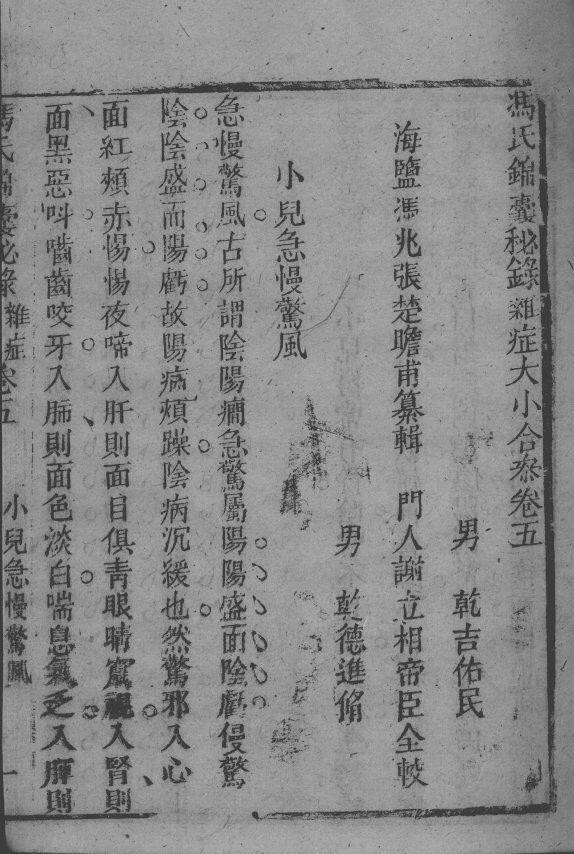 馮氏錦囊秘錄雜症大小合叅卷五
男 乾吉佑民
海鹽馮兆張楚瞻甫纂輯 門人謝立相帝臣仝較
男 乾德進脩
小兒急慢驚風
急慢驚風古所謂陰陽癎急驚屬陽陽盛而陰虧慢驚
陰陰盛而陽虧故陽病煩躁陰病沉緩也然驚邪入心
面紅頰赤惕惕夜啼入肝則面目俱青眼睛竄視入腎則
面黑惡叫嚙齒咬牙入肺則面色淡白喘息氣乏入脾則
馮氏錦囊秘錄 雜症卷五 小兒急慢驚風 一